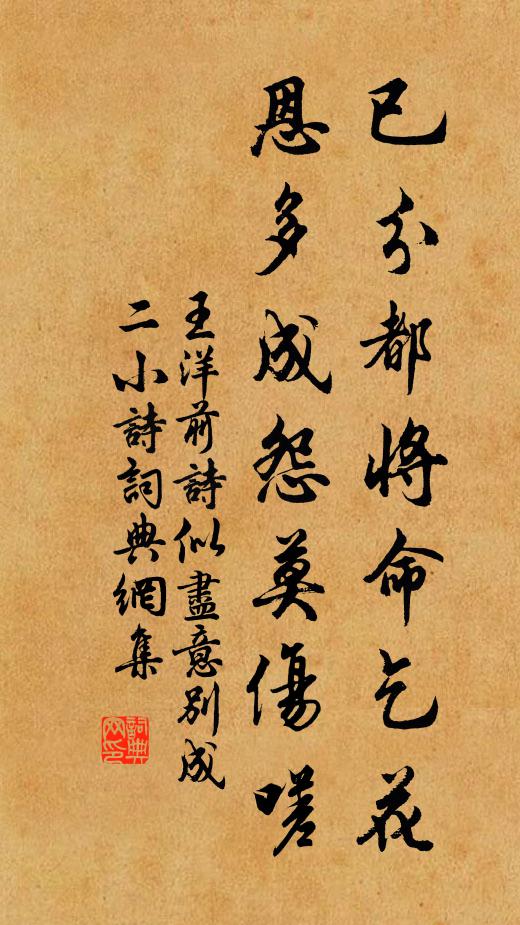 已分都將命乞花
恩多成怨莫傷嗟
王洋前詩似盡意別成
二小詩詞典網集
詞典網印